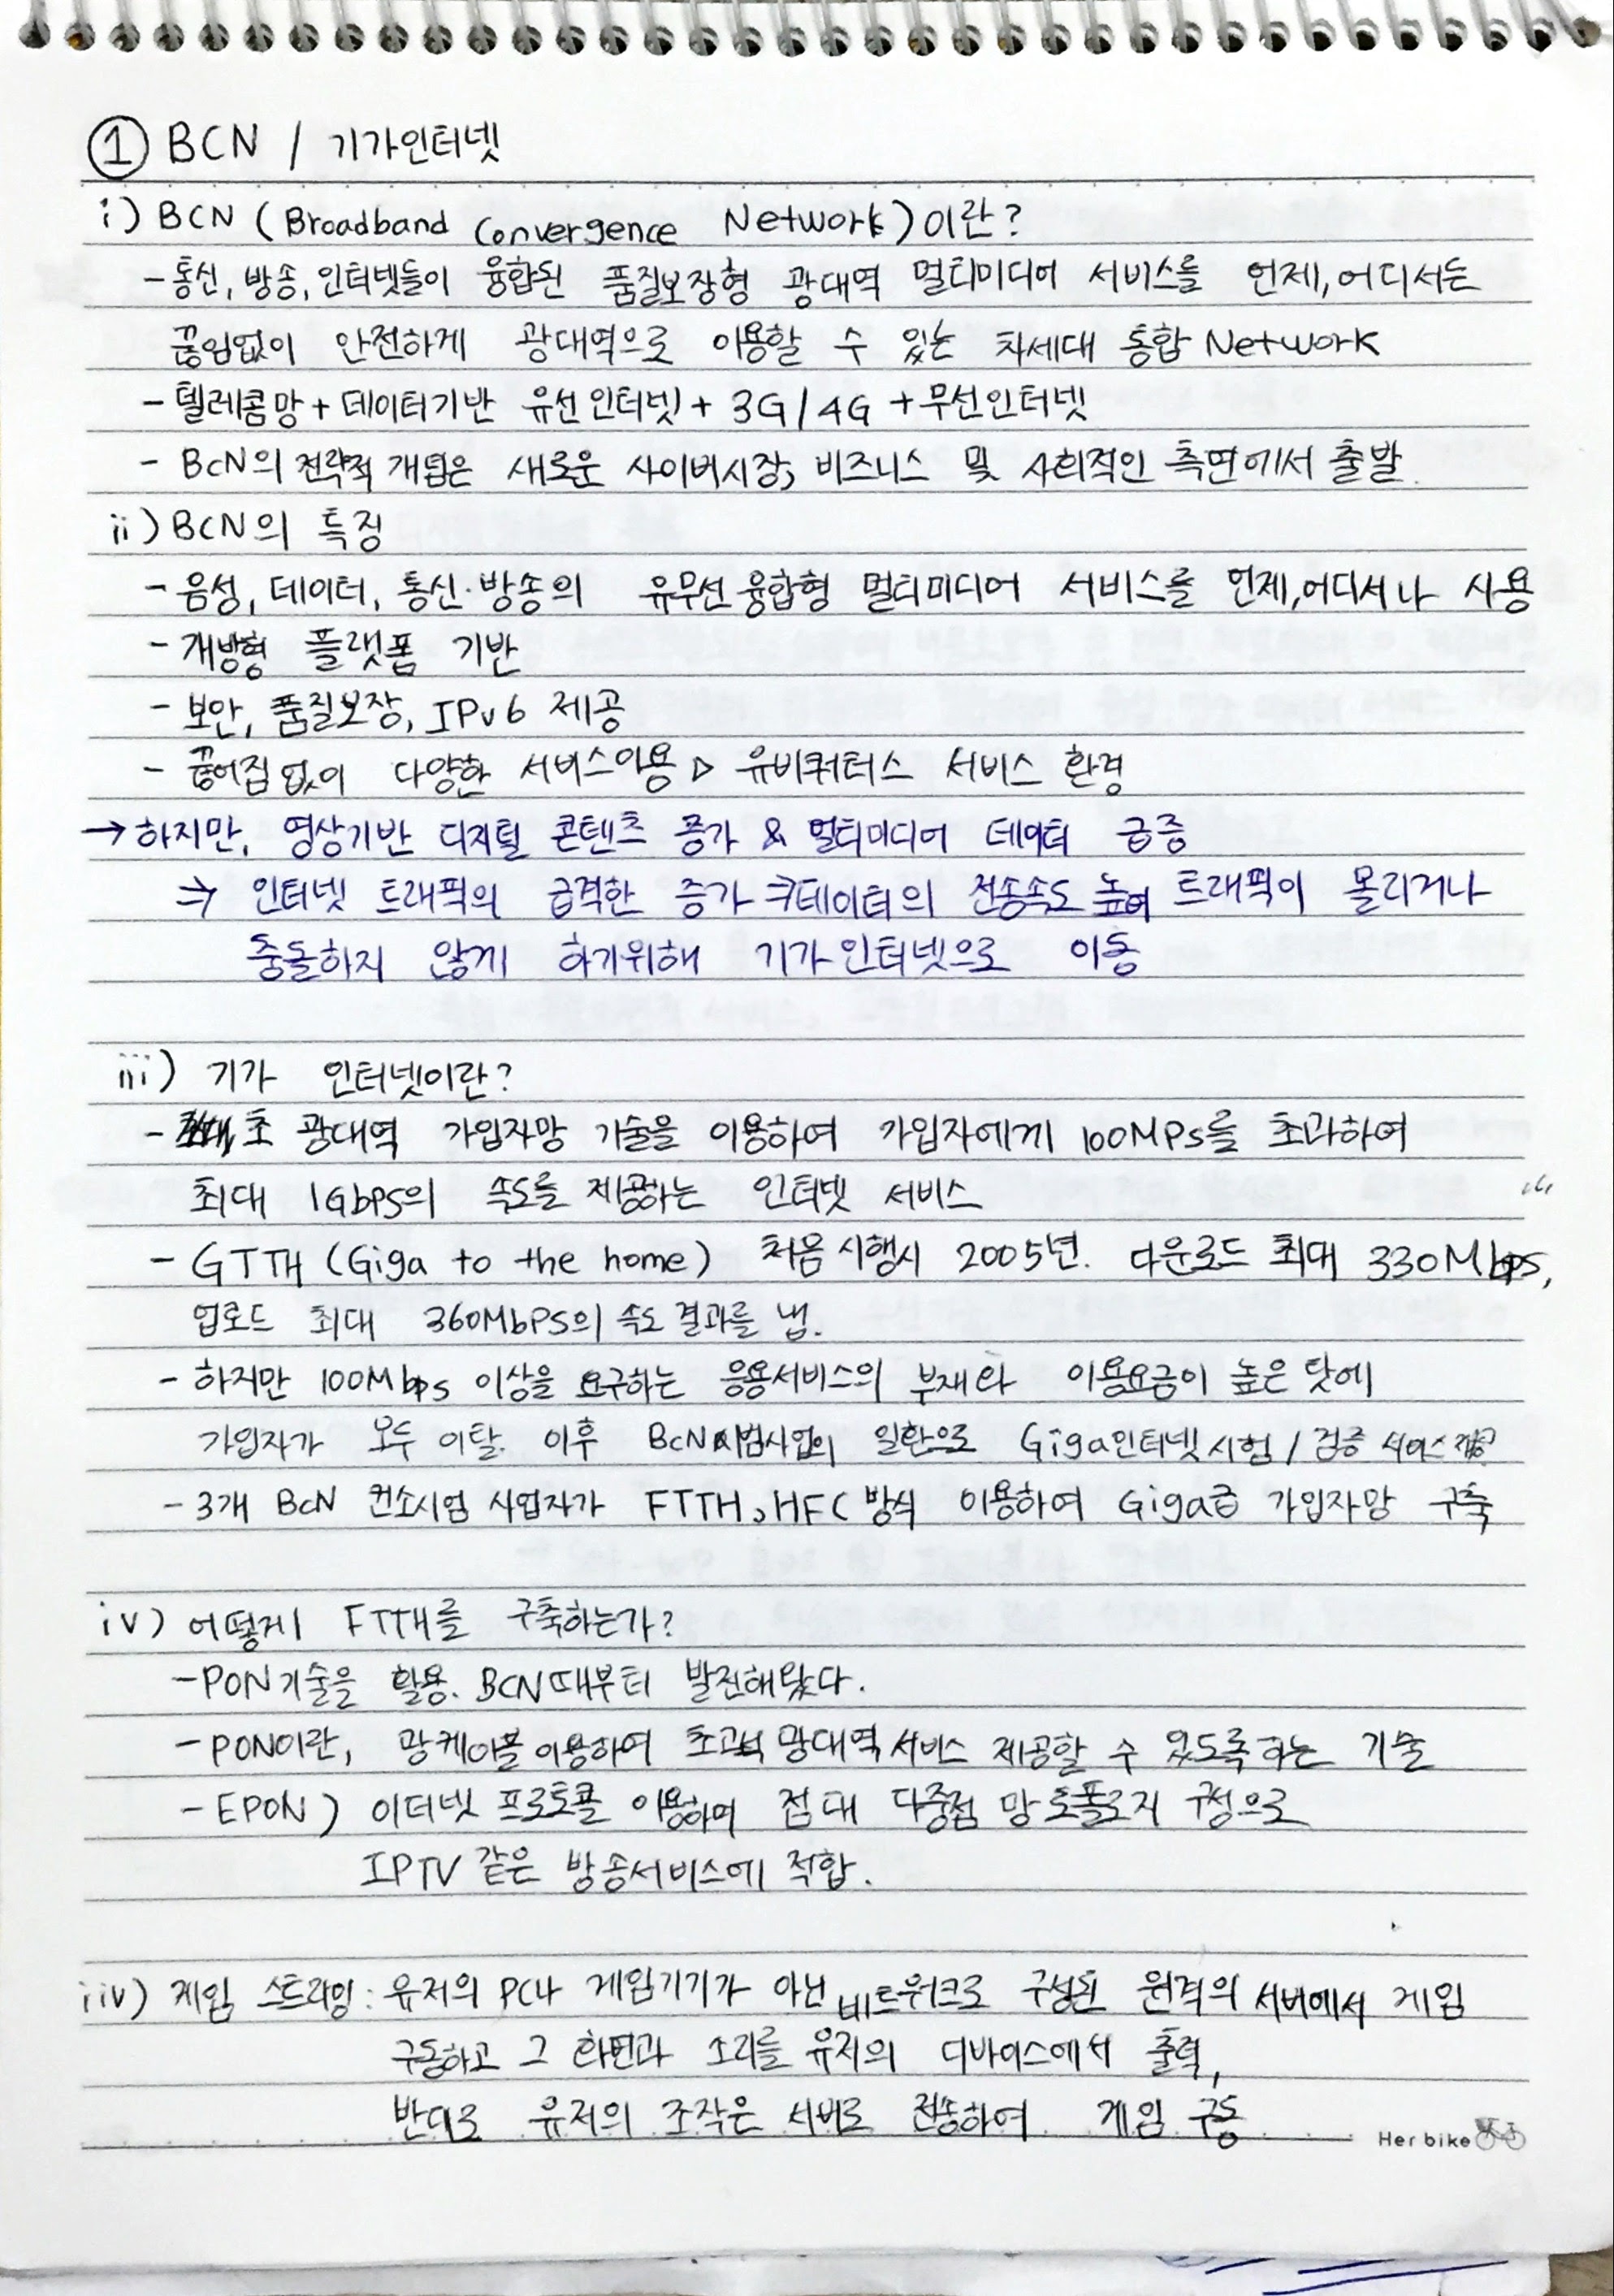 ① BCN / 기가인터넷
i) BCN (Broadband Convergence Network)이란?
- 통신, 방송, 인터넷들이 융합된 품질보장형 광대역 멀티미디어 서비스를 언제, 어디서든
끊임없이 안전하게 광대역으로 이용할 수 있는 차세대 통합 Network
- 텔레콤망 + 데이터기반 유선인터넷 + 3G/4G + 무선인터넷
- BcN의 전략적 개념은 새로운 사이버시장, 비즈니스 및 사회적인 측면에서 출발.
ii) BCN의 특징
- 음성, 데이터, 통신·방송의 유무선 융합형 멀티미디어 서비스를 언제,어디서나 사용
- 개방형 플랫폼 기반
- 보안, 품질보장, IPv6 제공
- 끊어짐 없이 다양한 서비스이용 ▷ 유비쿼터스 서비스 환경
→ 하지만, 영상기반 디지털 콘텐츠 증가 & 멀티미디어 데이터 급증
⇒ 인터넷 트래픽의 급격한 증가 ⇒ 데이터의 전송속도 높여 트래픽이 몰리거나
충돌하지 않게 하기위해 기가인터넷으로 이동
iii) 기가 인터넷이란?
- 초 광대역 가입자망 기술을 이용하여 가입자에게 100MPs를 초과하여
최대 1Gbps의 속도를 제공하는 인터넷 서비스
- GTTH (Giga to the home) 처음 시행시 2005년. 다운로드 최대 330Mbps,
업로드 최대 360Mbps의 속도 결과를 냄.
- 하지만 100Mbps 이상을 요구하는 응용서비스의 부재와 이용요금이 높은 탓에
가입자가 모두 이탈. 이후 BcN시범사업의 일환으로 Giga인터넷 시험/검증 서비스 제공
- 3개 BcN 컨소시엄 사업자가 FTTH, HFC 방식 이용하여 Giga급 가입자망 구축
iv) 어떻게 FTTH를 구축하는가?
- PON기술을 활용. BCN때부터 발전해왔다.
- PON이란, 광케이블 이용하여 초고속 광대역 서비스 제공할 수 있도록 하는 기술
- EPON) 이더넷 프로토콜 이용하여 점 대 다중점 망 토폴로지 구성으로
IPTV 같은 방송서비스에 적합.
iiv) 게임 스트리밍 : 유저의 PC나 게임기기가 아닌 네트워크로 구성된 원격의 서버에서 게임
구동하고 그 화면과 소리를 유저의 디바이스에서 출력,
반대로 유저의 조작은 서버로 전송하여 게임 구동
Her bike